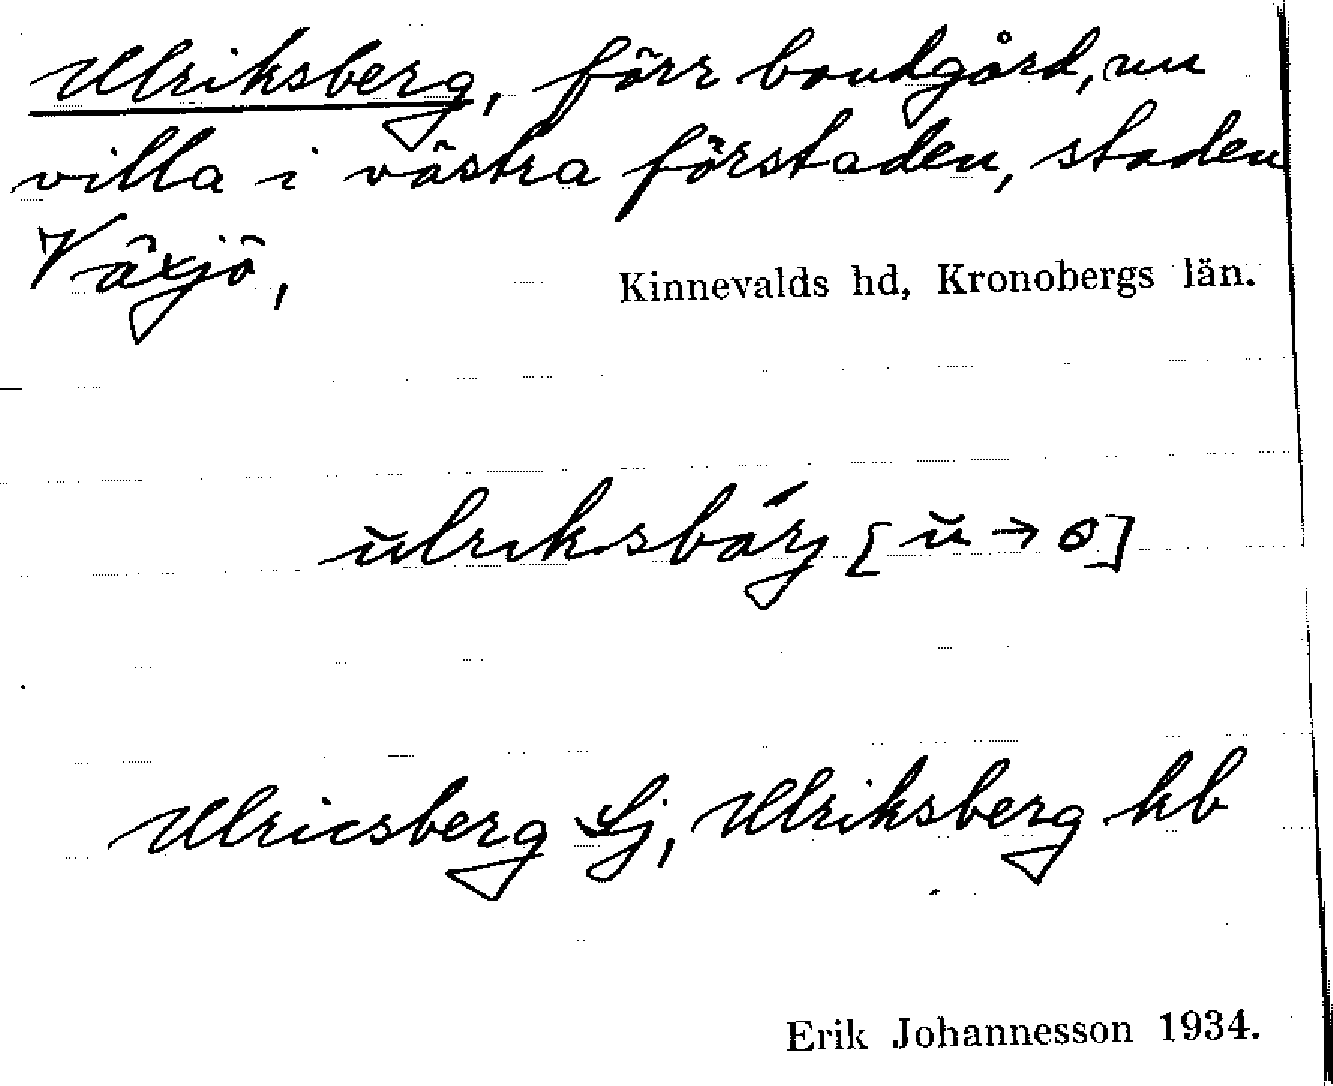 Ulriksberg, förr bondgård, nu
villa i västra förstaden, staden
Växjö,
Kinnevalds hd, Kronobergs län.
ŭlriksbárj [ŭ → o]
Ulricsberg Lj, Ulriksberg hb
Erik Johannesson 1934.